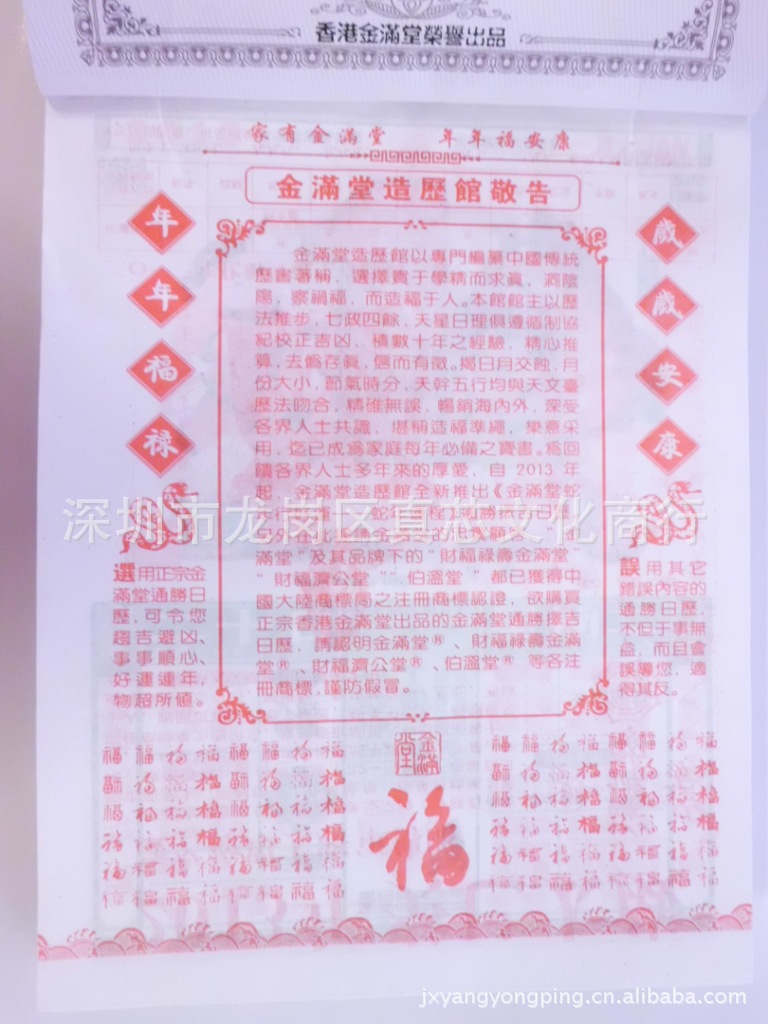 香港金滿堂榮譽出品
家有金滿堂 年年福安康
金滿堂造歷館敬告
年年福祿
歲歲安康
金滿堂造歷館以專門編纂中國傳統
歷書著稱，選擇貴于學精而求真，洞陰
陽，察禍福，而造福于人。本館館主以歷
法推步，七政四餘，天星日理俱遵循制協
紀校正吉凶，積數十年之經驗，精心推
算，去偽存真，信而有徵。揭日月交蝕，月
份大小，節氣時分，天幹五行均與天文臺
歷法吻合，精確無誤，暢銷海內外，深受
各界人士共識，堪稱造福準繩，樂意采
用，迄已成為家庭每年必備之寶書。為回
饋各界人士多年來的厚愛，自 2013 年
起，金滿堂造歷館全新推出《金滿堂蛇
滿堂”及其品牌下的“財福祿壽金滿堂”
“財福濟公堂”“伯溫堂”都已獲得中
國大陸商標局之注冊商標認證，欲購買
正宗香港金滿堂出品的金滿堂通勝擇吉
日歷，請認明金滿堂®、財福祿壽金滿
堂®、財福濟公堂®、伯溫堂® 等各注
冊商標，謹防假冒。
選用正宗金
滿堂通勝日
歷，可令您
趨吉避凶、
事事順心、
好運連年，
物超所值。
誤用其它
錯誤內容的
通勝日歷，
不但于事無
益，而且會
誤導您，適
得其反。
金滿堂
福
深圳市龙岗区真然文化商行
jxyangyongping.cn.alibaba.com